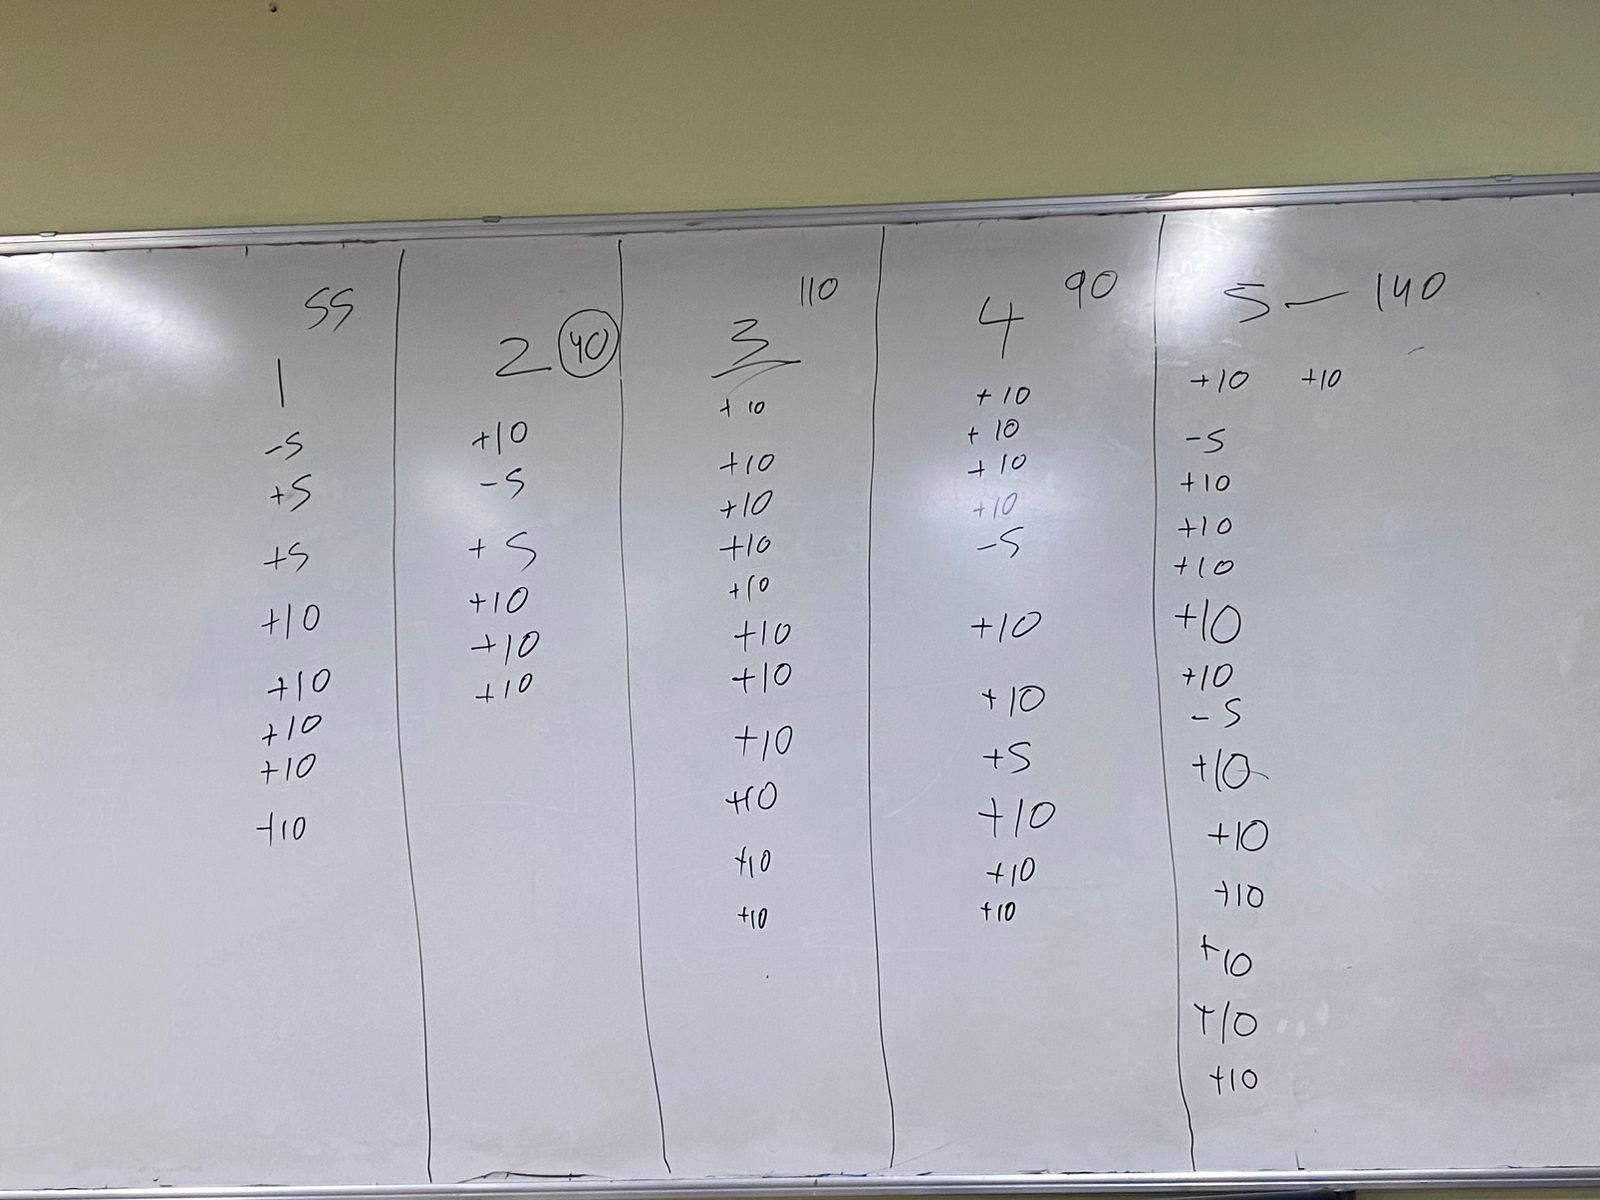 55
1
-5
+5
+5
+10
+10
+10
+10
+10
2 40
+10
-5
+5
+10
+10
+10
110
3
+10
+10
+10
+10
+10
+10
+10
+10
+10
+10
+10
90
4
+10
+10
+10
+10
-5
+10
+10
+5
+10
+10
+10
5 — 140
+10 +10
-5
+10
+10
+10
+10
+10
-5
+10
+10
+10
+10
+10
+10